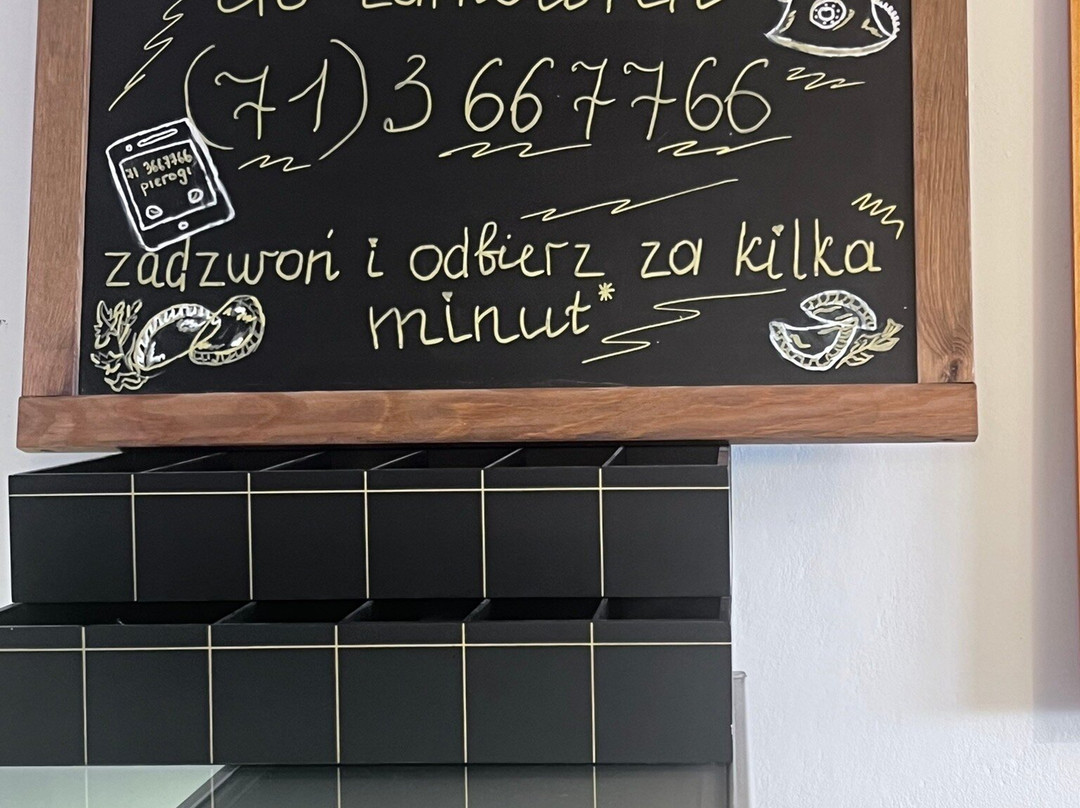 (71) 3 667766
71 3667766
pierogi
zadzwoń i odbierz za kilka
minut*